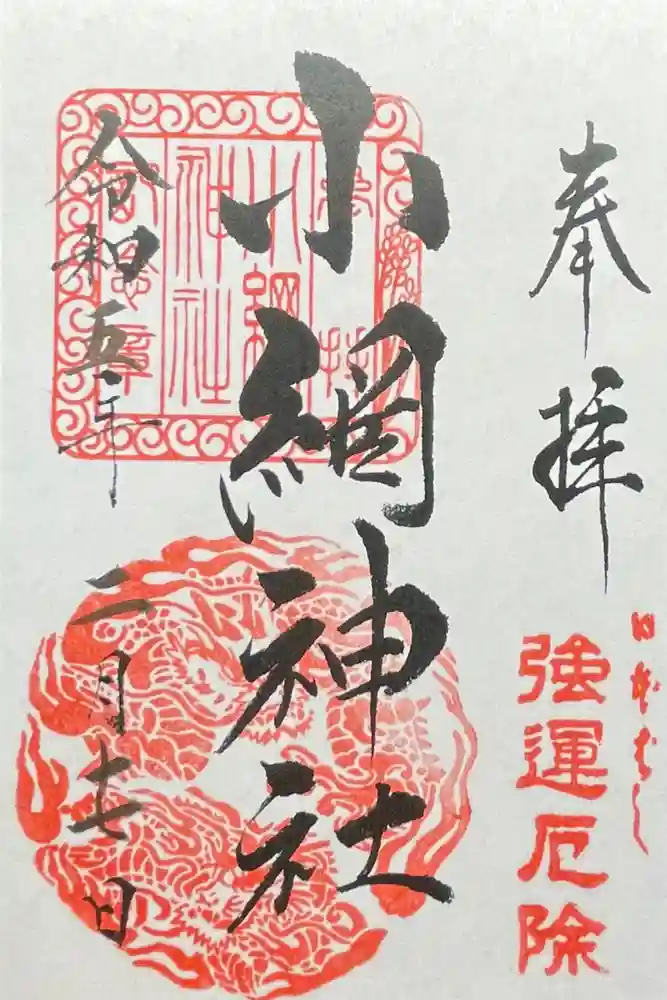 奉拝
日本ばし
強運厄除
小網神社
小網
神社
令和五年
二月十七日